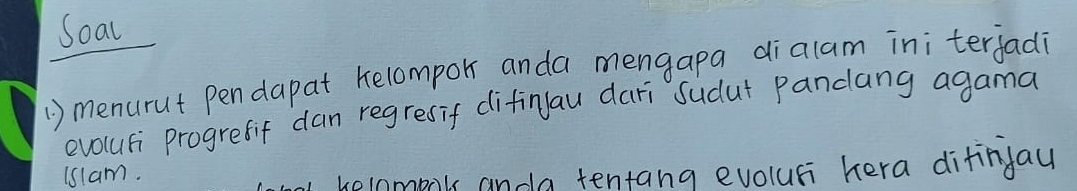 Soal
1.) menurut pendapat kelompok anda mengapa di alam ini terjadi
evolusi progresif dan regresif ditinjau dari sudut pandang agama
Islam.
kelompok anda tentang evolusi kera ditinjau